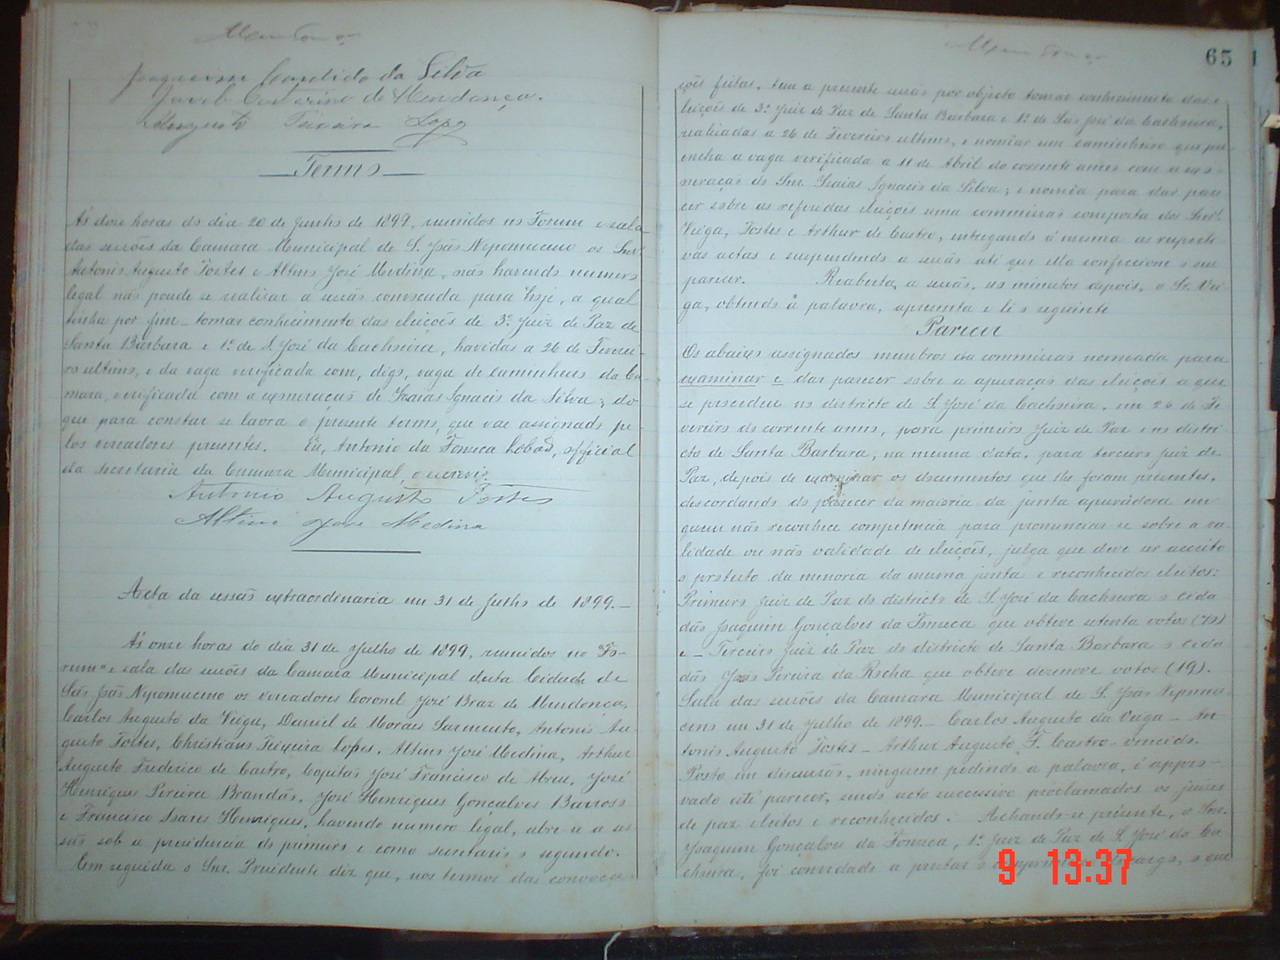 Joaquim Candido da Silva
Jacob Cesterino de Mendonça.
Augusto Teixeira Lopes
Termo
Ás doze horas do dia 20 de Junho de 1899, reunidos no Forum e sala
das sessões da Camara Municipal de S. João Nepomuceno os Snrs
Antonio Augusto Fortes e Altino José Medina, não havendo numero
legal não poude se realizar a sessão convocada para hoje, a qual
tinha por fim tomar conhecimento das eleições de 3º Juiz de Paz de
Santa Barbara e 1º de S. José da Cachoeira, havidas a 26 de Feverei-
ro ultimo, e da vaga verificada com, digo, vaga de caminheiro da Ca-
mara, verificada com a exoneração de Izaias Ignacio da Silva; do
que para constar se lavra o presente termo, que vae assignado pe-
los vereadores presentes. Eu, Antonio da Fonseca Lobão, official
da secretaria da Camara Municipal, o escrevi.
Antonio Augusto Fortes
Altino José Medina
Acta da sessão extraordinaria em 31 de Julho de 1899.—
Ás onze horas do dia 31 de Julho de 1899, reunidos no "Fo-
rum" e sala das sessões da Camara Municipal desta Cidade de
São João Nepomuceno os vereadores Coronel José Braz de Mendonça,
Carlos Augusto da Veiga, Daniel de Moraes Sarmento, Antonio Au-
gusto Fortes, Christiano Teixeira Lopes, Altino José Medina, Arthur
Augusto Frederico de Castro, Capitão José Francisco de Abreu, José
Henriques Pereira Brandão, José Henriques Gonçalves Barroso
e Francisco Soares Henriques, havendo numero legal, abre-se a ses-
são sob a presidencia do primeiro e como secretario o segundo.
Em seguida o Snr. Presidente diz que, nos termos das convoca-
65
ções feitas, tem a presente sessão por objecto tomar conhecimento das e-
leições de 3º Juiz de Paz de Santa Barbara e 1º de São José da Cachoeira,
realizadas a 26 de Fevereiro ultimo, e nomear um caminheiro que pre-
encha a vaga verificada a 11 de Abril do corrente anno com a exo-
neração do Snr. Izaias Ignacio da Silva; e nomeia para dar pare-
cer sobre as referidas eleições uma commissão composta dos Snrs.
Veiga, Fortes e Arthur de Castro, entregando á mesma as respecti-
vas actas e suspendendo a sessão até que ella confeccione o seu
parecer. Reaberta, a sessão, minutos depois, o Sr. Vei-
ga, obtendo a palavra, apresenta e lê o seguinte
Parecer
Os abaixo assignados membros da commissão nomeada para
examinar e dar parecer sobre a apuração das eleições a que
se procedeu no districto de S. José da Cachoeira, em 26 de Fe-
vereiro do corrente anno, para primeiro Juiz de Paz e no distri-
cto de Santa Barbara, na mesma data, para terceiro juiz de
Paz, depois de examinar os documentos que lhe foram presentes,
discordando do parecer da maioria da junta apuradora em
quem não reconhece competencia para pronunciar-se sobre a va-
lidade ou não validade de eleições, julga que deve ser acceito
o protesto da menoria da mesma junta e reconhecidos eleitos:
Primeiro Juiz de Paz do districto de S. José da Cachoeira o cida-
dão Joaquim Gonçalves da Fonseca que obteve setenta votos (70)
e — Terceiro Juiz de Paz do districto de Santa Barbara o cida-
dão José Pereira da Rocha que obteve dezenove votos (19).
Sala das sessões da Camara Municipal de S. João Nepomu-
ceno em 31 de Julho de 1899.— Carlos Augusto da Veiga — An-
tonio Augusto Fortes — Arthur Augusto F. Castro — vencido.
Posto em discussão, ninguem pedindo a palavra, é appro-
vado este parecer, sendo acto successivo proclamados os juizes
de paz eleitos e reconhecidos. Achando-se presente, o Snr.
Joaquim Gonçalves da Fonseca, 1º Juiz de Paz de S. José da Ca-
choeira, foi convidado a prestar o cargo, o que
9 13:37